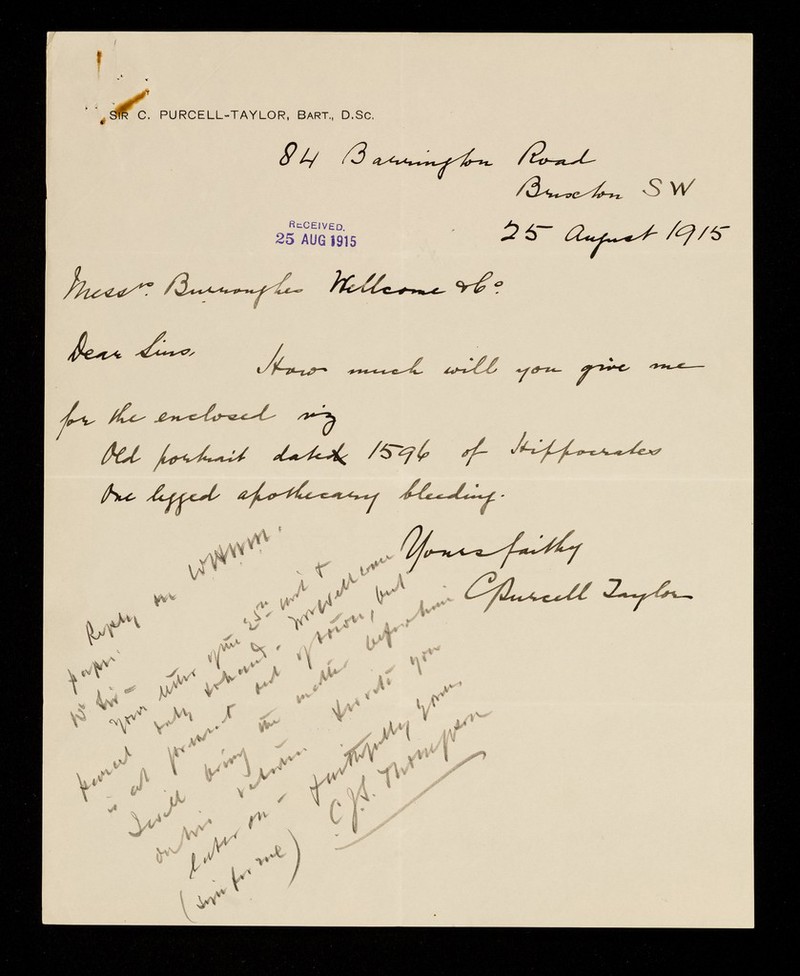 SIR C. PURCELL-TAYLOR, BART., D.SC.
84 Barrington Road
Brixton SW
RECEIVED.
25 AUG 1915
25 August 1915
Messrs. Burroughes Wellcome & Co.
Dear Sirs,
How much will you give me
for the enclosed viz
Old portrait dated 1596 of Hippocrates
One legged apothecary bleeding.
Yours faithy
C Purcell Taylor
Reply on WHMM.
paper.
Dr Sir -
Your letter of the 25th inst &
parcel duly to hand - Mr Wellcome
is at present out of town, but
I will bring the matter before him
on his return & write to you
later on - Faithfully yours,
C.J.S. Thompson
(sign for me)